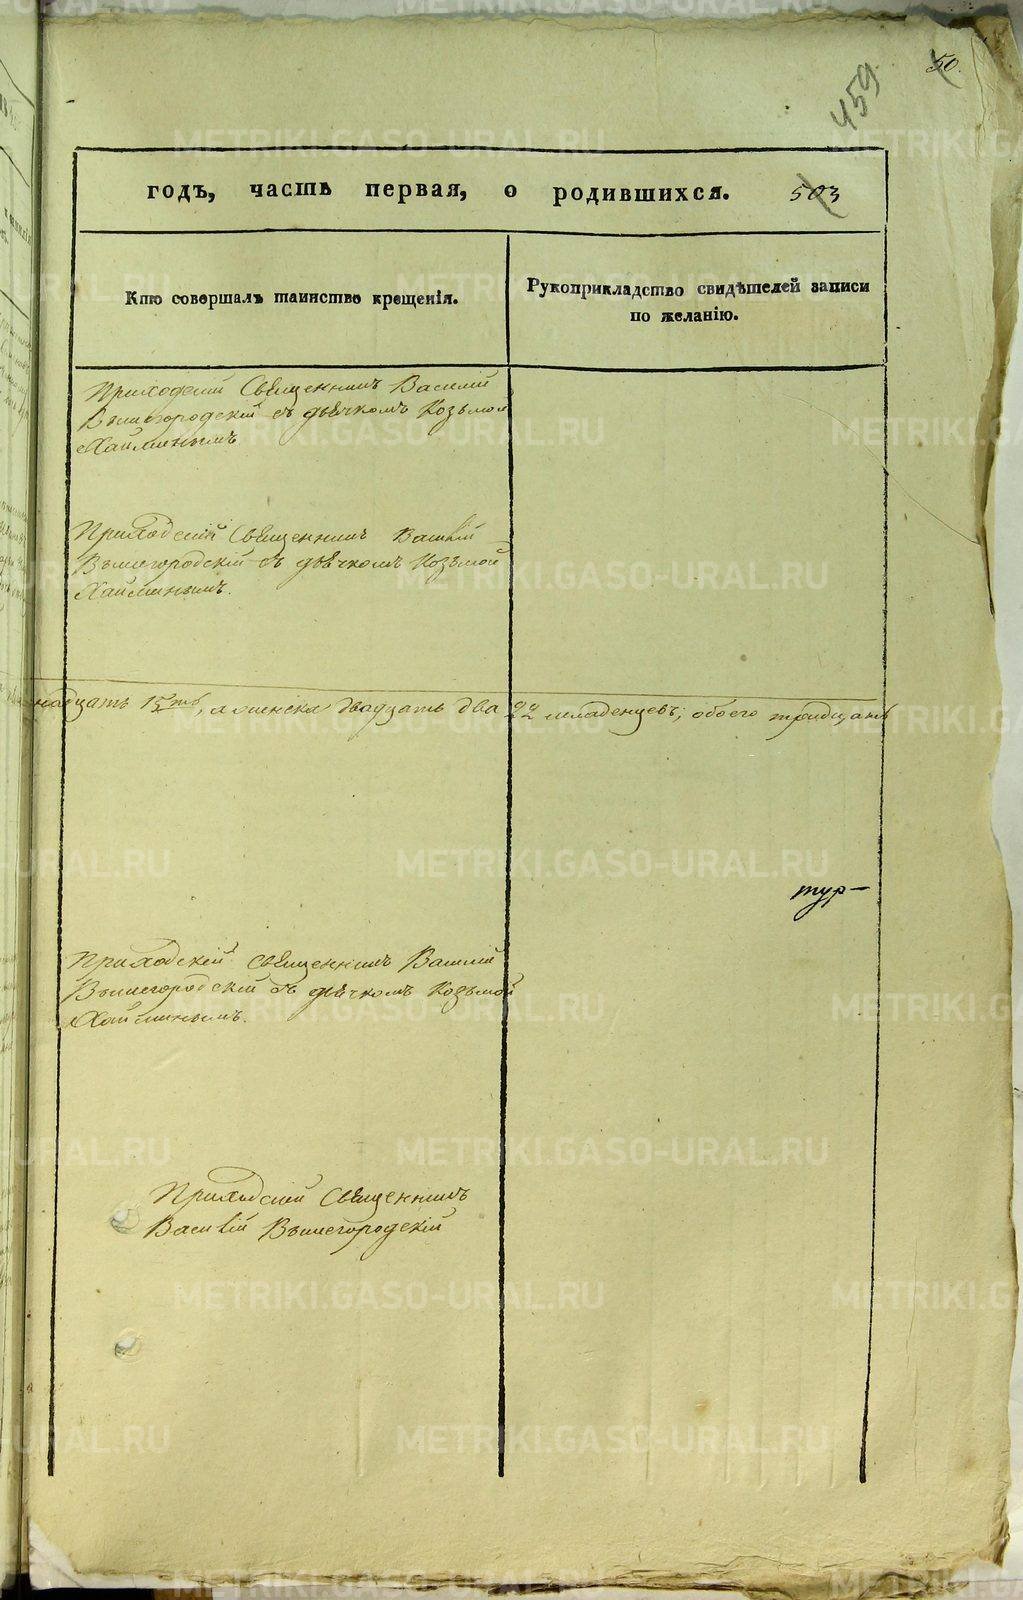 50.
459
годъ, часть первая, о родившихся. 503
Кто совершалъ таинство крещенія.
Рукоприкладство свидѣтелей записи
по желанію.
Приходскій Священникъ Василій
Вышегородскій съ дьячкомъ Козьмой
Хайминымъ
Приходскій Священникъ Василій
Вышегородскій съ дьячкомъ Козьмой
Хайминымъ.
надцать 15ть, а женска двадцать два 22 младенцевъ, обоего тридцать
тур-
Приходскій священникъ Василій
Вышегородскій съ дьячкомъ Козьмой
Хайминымъ.
Приходскій Священникъ
Василій Вышегородскій
METRIKI.GASO-URAL.RU